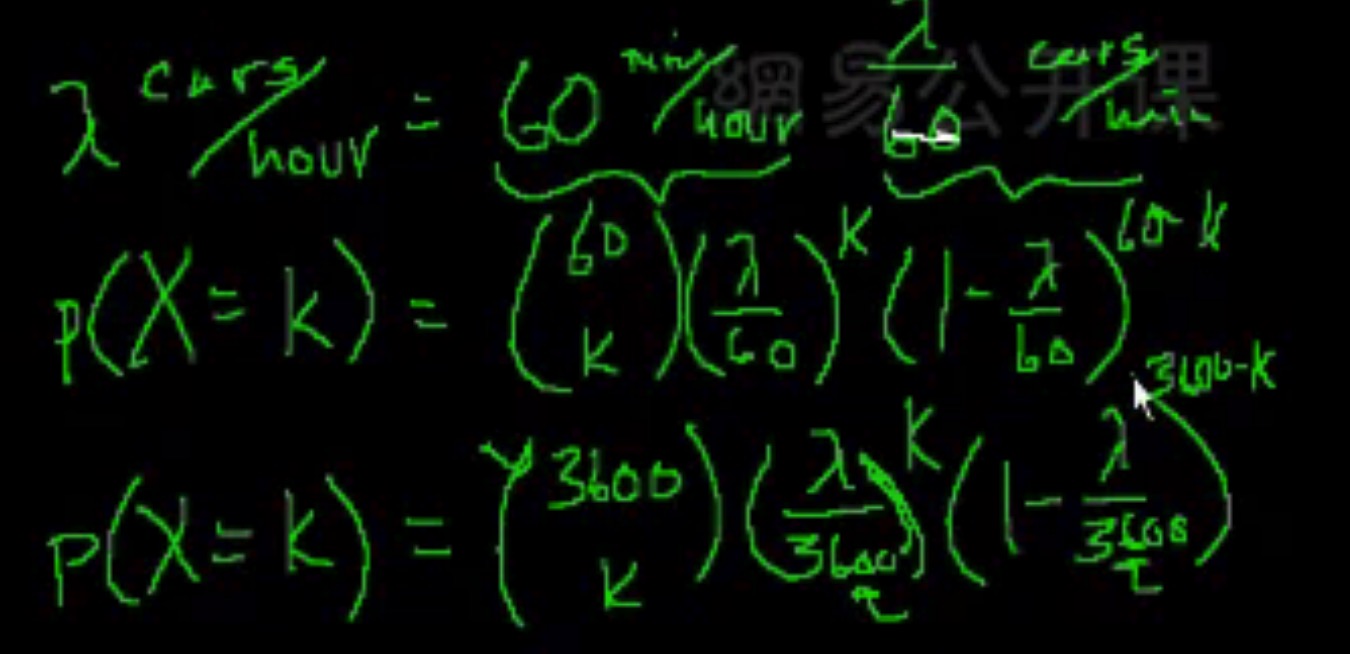 λ cars/hour = 60 min/hour λ/60 cars/min
網易公开课
P(X = k) = (60 k) (λ/60)^k (1 - λ/60)^60-k
P(X = k) = (3600 k) (λ/3600)^k (1 - λ/3600)^3600-k